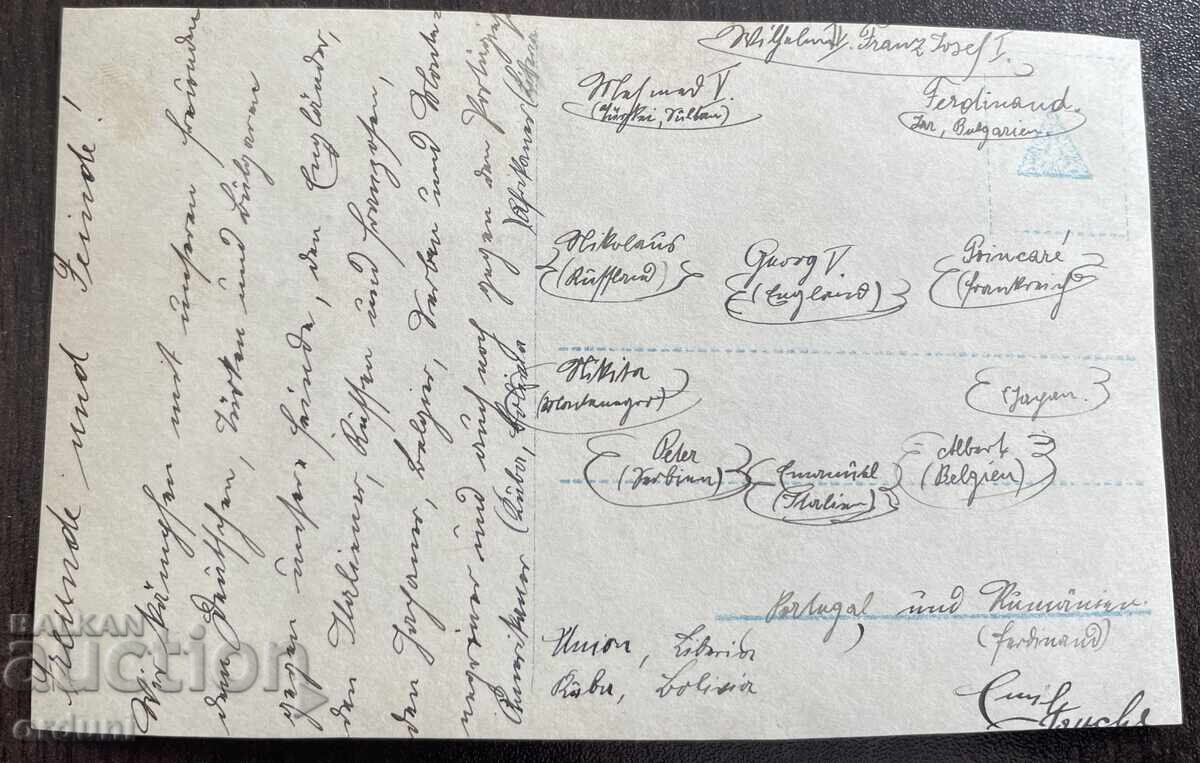 Freunde und Feinde!
Wir kämpfen mit unseren Freunden
den Deutschen, Türken und Bulgaren
gegen unsere Feinde, den Engländer,
den Italiener, Russen und Franzosen,
den Japaner, Belgier, Serben und Monte-
negriner und auch noch gegen den Portugiesen
Amerikaner (Kuba, Bolivia )Afrikaner (Liberia
Wilhelm II. Franz Josef I.
Mehmed V.
(Türkei, Sultan)
Ferdinand.
Zar, Bulgarien.
Nikolaus
(Russland)
Georg V.
(England)
Poincaré
(Frankreich)
Nikita
(Montenegro)
(Japan.)
Peter
(Serbien)
Emanuel
(Italien)
Albert
(Belgien)
Portugal und Rumänien.
(Ferdinand)
Union, Liberia
Kuba, Bolivia
Emil
BALKAN
auction
orduni